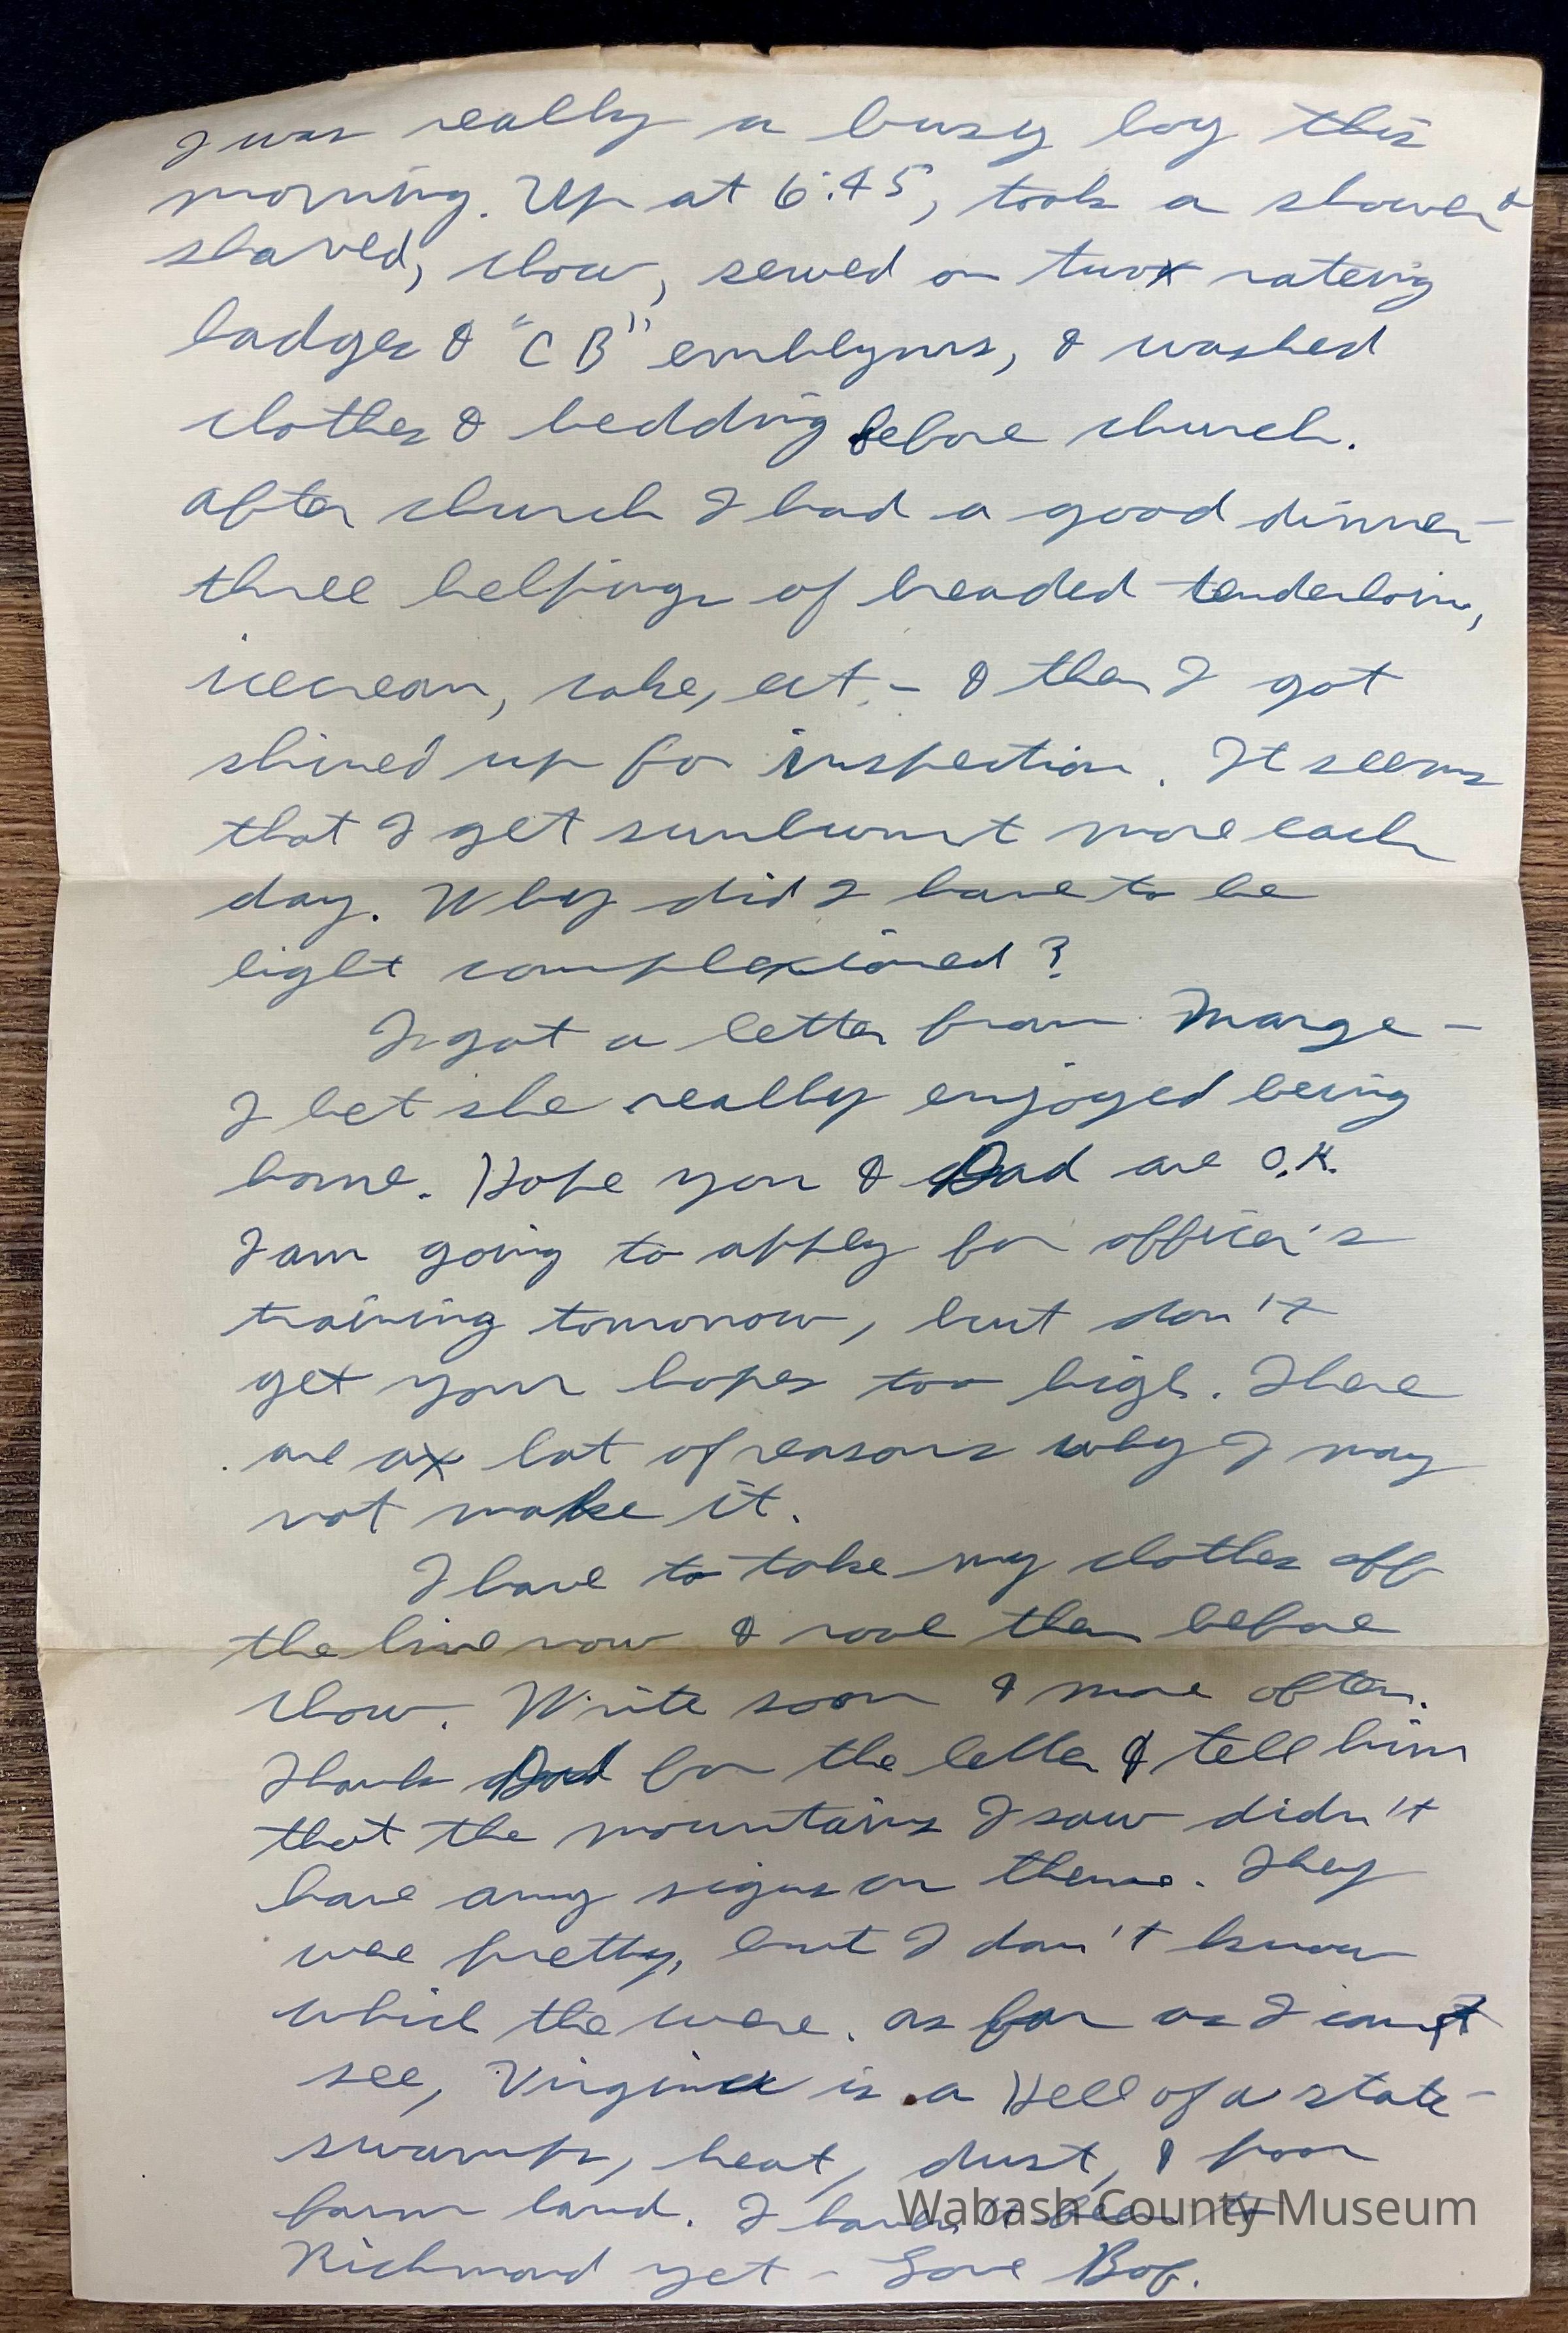 I was really a busy boy this
morning. Up at 6:45, took a shower &
shaved, chow, sewed on two rating
badges & "CB" emblyms, & washed
clothes & bedding before church.
After church I had a good dinner -
three helpings of breaded tenderloin,
icecream, cake, ect. - & then I got
shined up for inspection. It seems
that I get sunburnt more each
day. Why did I have to be
light complexioned?
I got a letter from Marge -
I bet she really enjoyed being
home. Hope you & Dad are O.K.
I am going to apply for officer's
training tomorrow, but don't
get your hopes too high. There
are a lot of reasons why I may
not make it.
I have to take my clothes off
the line now & roll them before
chow. Write soon & more often.
Thank Dad for the letter & tell him
that the mountains I saw didn't
have any signs on them. They
were pretty, but I don't know
which the were. As far as I can
see, Virginia is a Hell of a state -
swamps, heat, dust, & poor
farm land. I haven't been to
Richmond yet - Love Bob.
Wabash County Museum